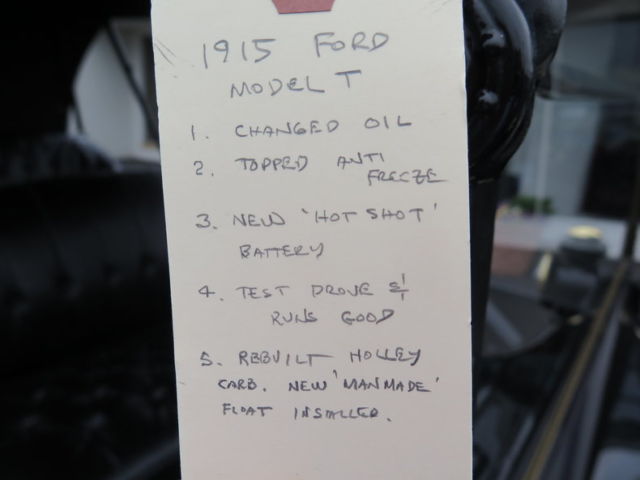 1915 FORD
MODEL T
1. CHANGED OIL
2. TOPPED ANTI
FREEZE
3. NEW 'HOT SHOT'
BATTERY
4. TEST DROVE &
RUNS GOOD
5. REBUILT HOLLEY
CARB. NEW 'MANMADE'
FLOAT INSTALLED.